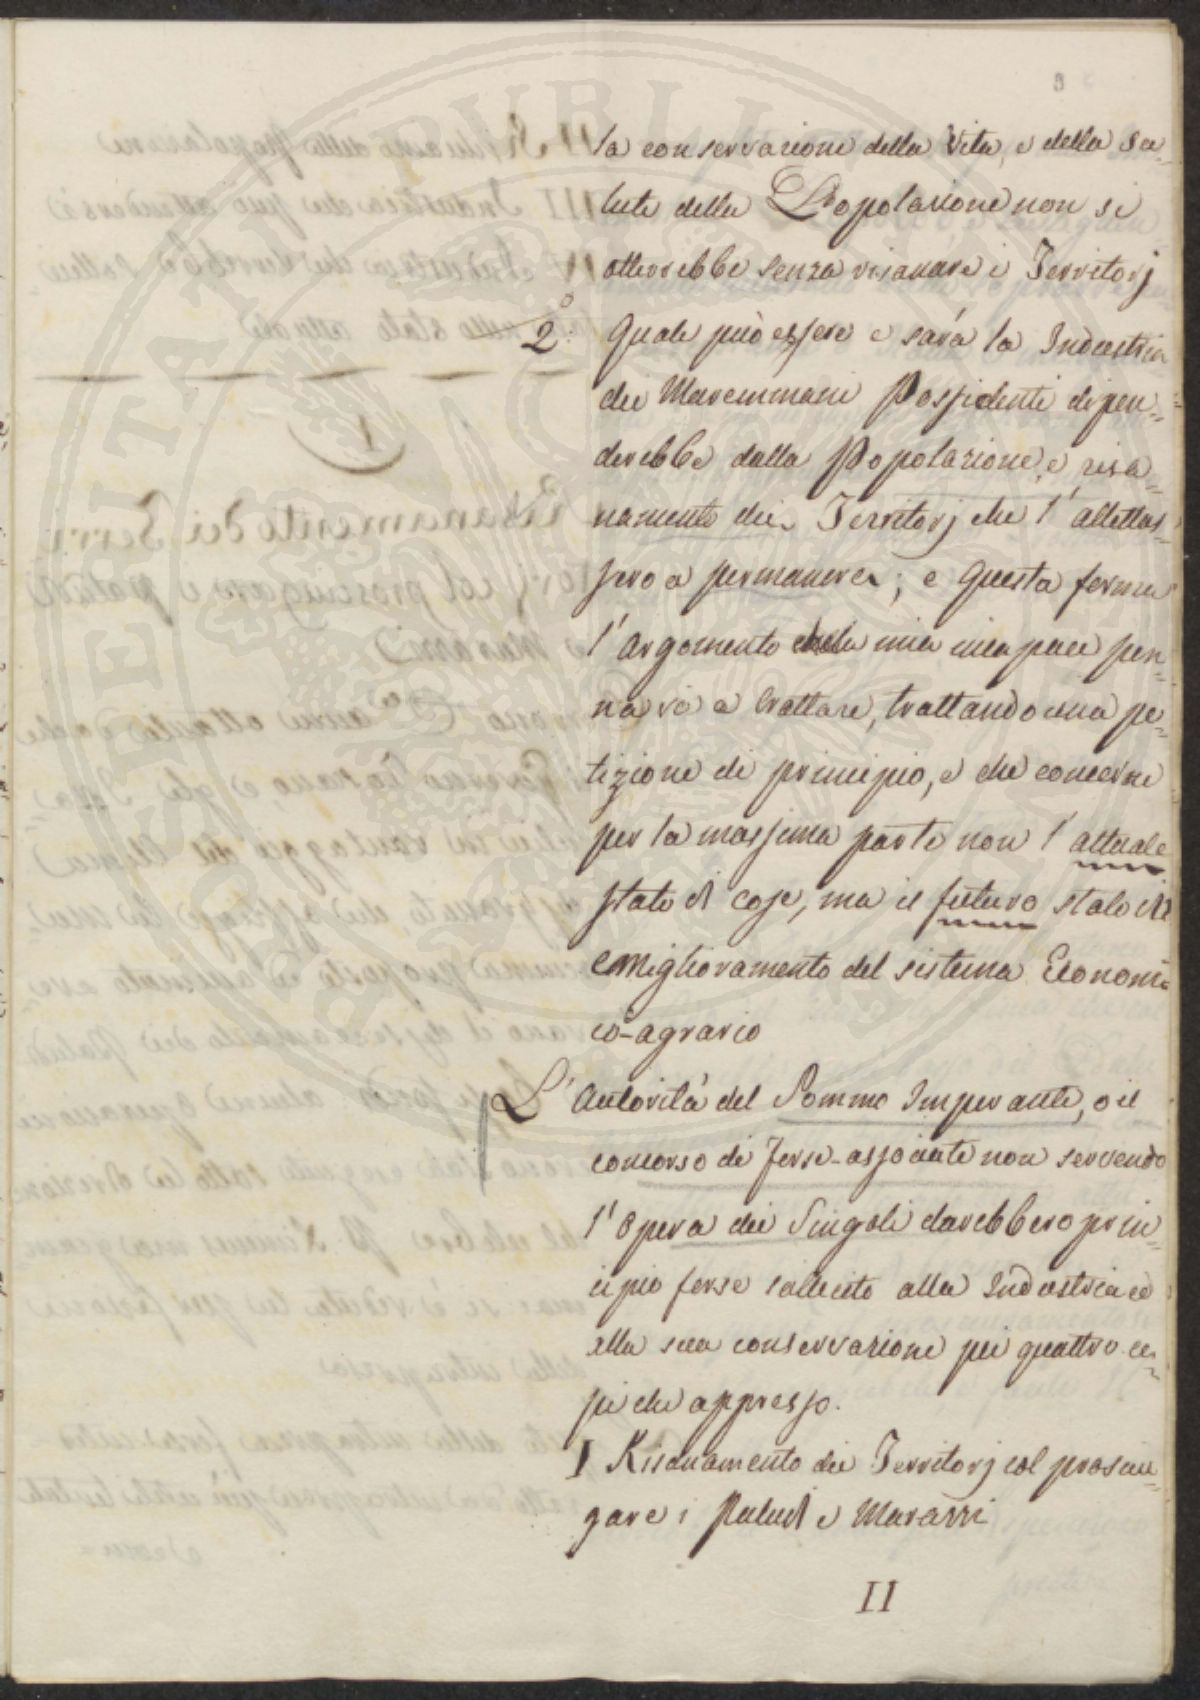 la conservazione della Vita, e della Sa-
lute della Popolazione non si
otterrebbe senza risanare i Territorj
2.° Quale può essere e sarà la Industria
dei Maremmani Possidenti dipen-
derebbe dalla Popolazione, e risa-
namento dei Territorj che l'allettas-
sero a permanere; e questa forma
l'Argomento della mia incapace pen-
na a trattare, trattando una pe-
tizione di principio, e che concerne
per la massima parte non l'attuale
stato di cose, ma il futuro stato di
Miglioramento del sistema Economi-
co-agrario
L'Autorità del Sommo Imperante, o il
concorso di forze-associate non servendo
l'Opera dei Singoli darebbero prin-
cipio forse sollecito alla Industria ed
alla sua conservazione pei quattro ca-
pi che appresso.
I Risanamento dei Territorj col prosciu-
gare i Paludi e Marazzi
II